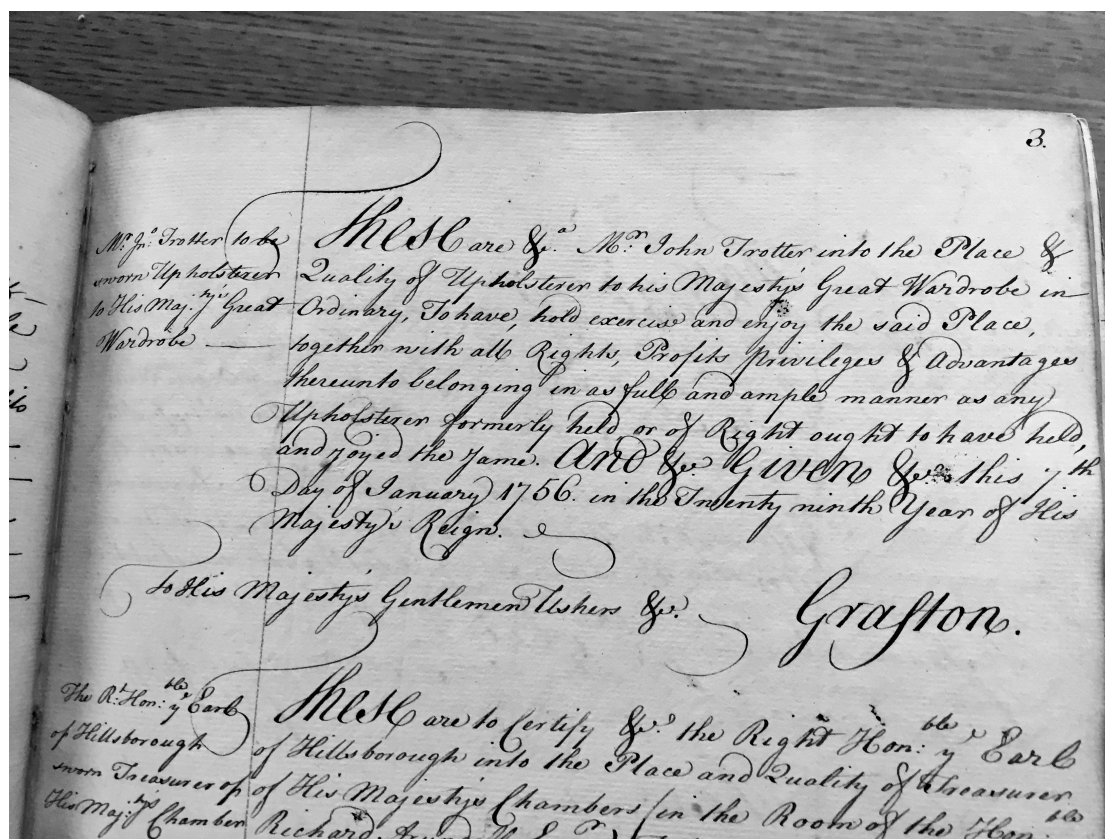 3.
Mr. Jno. Trotter to be
sworn Upholsterer
to His Maj:ty's Great
Wardrobe
These are &a. Mr. John Trotter into the Place &
Quality of Upholsterer to his Majesty's Great Wardrobe in
Ordinary, To have, hold exercise and enjoy the said Place,
together with all Rights, Profits Privileges & Advantages
thereunto belonging in as full and ample manner as any
Upholsterer formerly held or of Right ought to have held,
and joyed the same. And &c. Given &c. this 7th
Day of January 1756. in the Twenty ninth Year of His
Majesty's Reign.
To His Majesty's Gentlemen Ushers &c.
Grafton.
The Rt. Hon:ble ye Earl
of Hillsborough
sworn Treasurer of
His Maj:ty's Chamber
These are to Certify &c. the Right Hon:ble ye Earl
of Hillsborough into the Place and Quality of Treasurer
of His Majesty's Chambers (in the Room of the Hon:ble
Richard